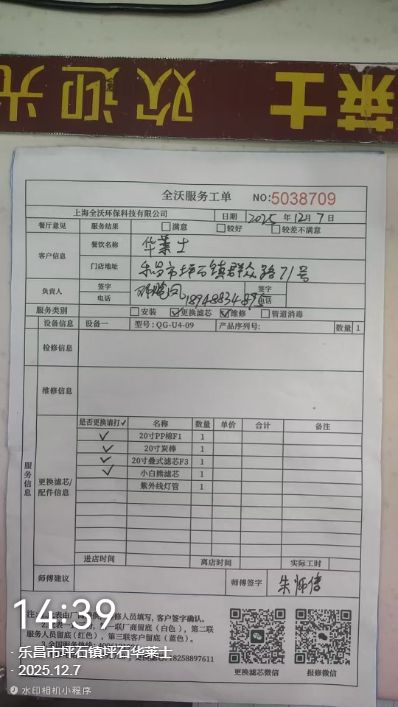 莱士 欢迎光
全沃服务工单 NO:5038709
上海全沃环保科技有限公司 日期 2025年12月7日
餐厅意见 服务结果 □满意 □较好 □较差不满意
客户信息 餐饮名称 华莱士
门店地址 乐昌市坪石镇群众路71号
负责人 签字
电话 签字
电话
服务类别 □安装 ☑更换滤芯 ☑维修 □管道消毒
设备信息 设备一 型号:QG-U4-09 产品序列号: 数量 1
检修信息
维修信息
服务信息
更换滤芯/配件信息
是否更换请打✓ 名称 数量 单价 合计 备注
✓ 20寸PP棉F1 1
✓ 20寸炭棒 1
✓ 20寸叠式滤芯F3 1
✓ 小白熊滤芯 1
紫外线灯管 1
进店时间 离店时间 实际工时
师傅建议 师傅签字 朱师傅
修人员填写,客户签字确认。
联厂商留底(白色),第二联
服务人员留底(红色),第三联客户留底(蓝色)。
18258897611
更换滤芯微信 报修微信
14:39
乐昌市坪石镇坪石华莱士
2025.12.7
水印相机小程序